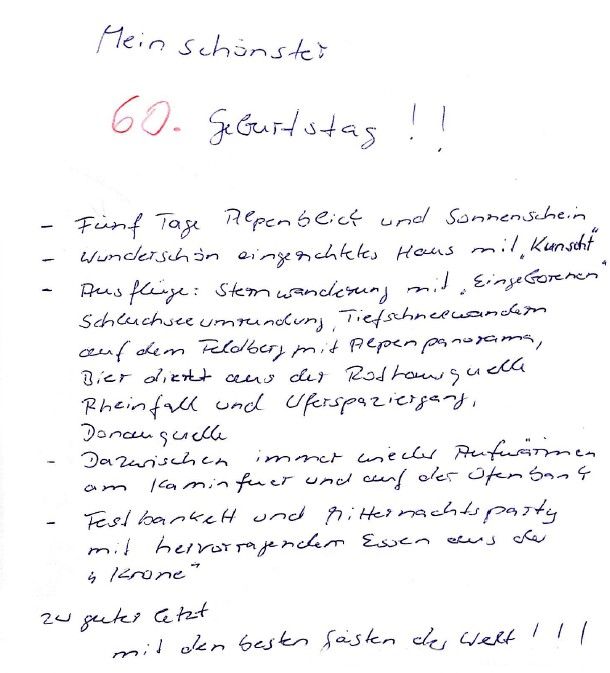 Mein schönster
60. Geburtstag !!
- Fünf Tage Alpenblick und Sonnenschein
- Wunderschön eingerichtetes Haus mit „Kunscht"
- Ausflüge: Sternwanderung mit „Eingeborenen"
Schluchseeumrundung, Tiefschneewandern
auf dem Feldberg mit Alpenpanorama,
Bier direkt aus der Rothausquelle
Rheinfall und Uferspaziergang,
Donauquelle
- Dazwischen immer wieder Aufwärmen
am Kaminfeuer und auf der Ofenbank
- Festbankett und Mitternachtsparty
mit hervorragendem Essen aus der
„Krone"
zu guter letzt
mit den besten Gästen der Welt !!!